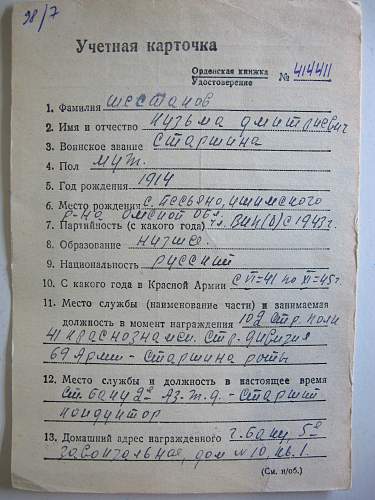 98/7
Учетная карточка
Орденская книжка
Удостоверение № 414411
1. Фамилия Шестаков
2. Имя и отчество Кузьма Дмитриевич
3. Воинское звание Старшина
4. Пол муж.
5. Год рождения 1914
6. Место рождения с. Песьяно, Ишимского
р-на Омской обл.
7. Партийность (с какого года) чл. ВКП(б) с 1943 г.
8. Образование низшее
9. Национальность русский
10. С какого года в Красной Армии с VI-41 по XI-45 г.
11. Место службы (наименование части) и занимаемая
должность в момент награждения 102 стр. полк
41 краснознамен. стр. дивизия
69 Арми – старшина роты
12. Место службы и должность в настоящее время
ст. Баку 2е Аз. ж. д. – старший
кондуктор
13. Домашний адрес награжденного г. Баку, 5е
завокзальное, дом № 10, кв. 1.
(См. н/об.)